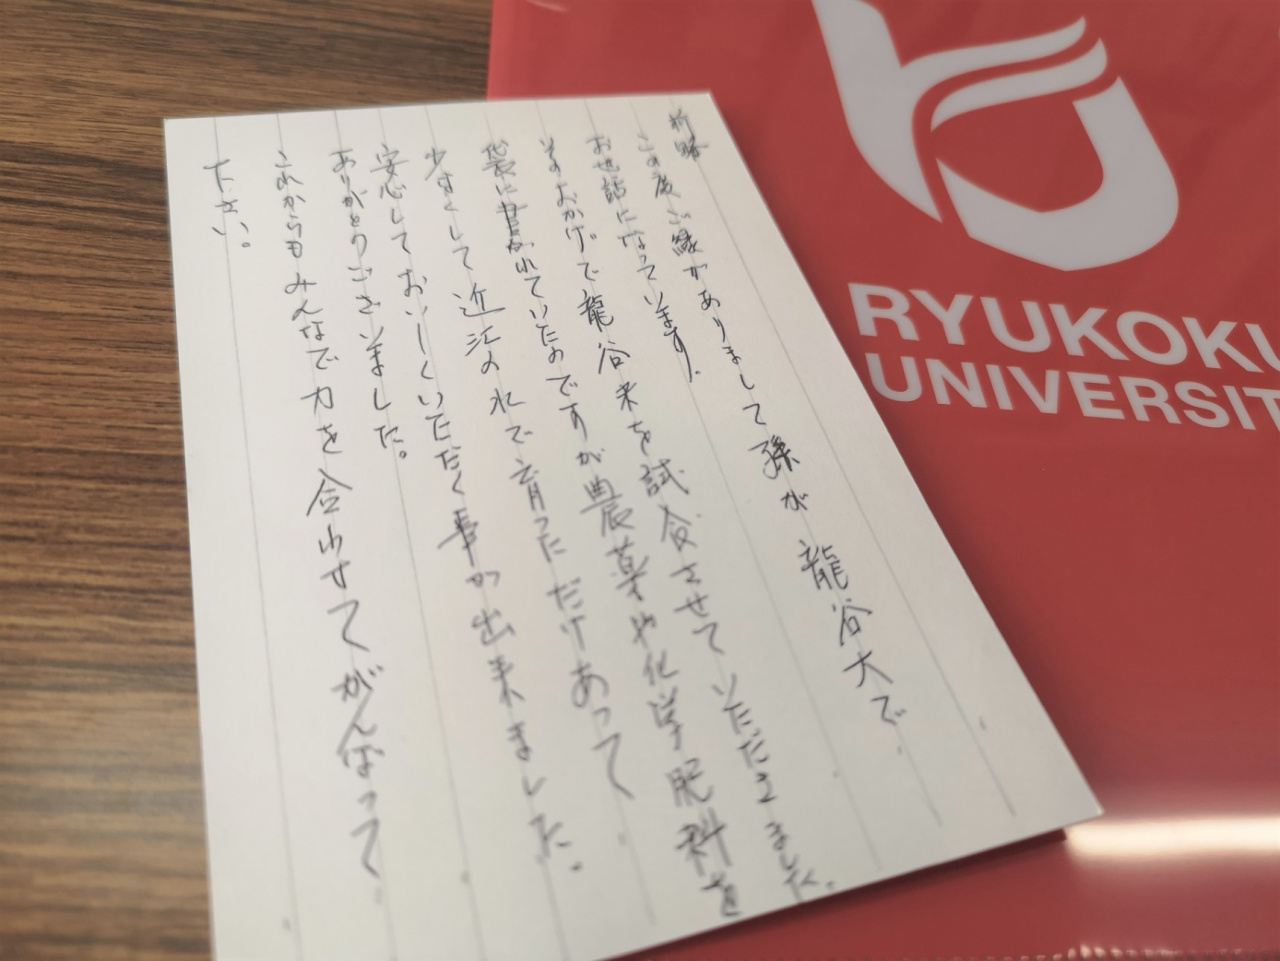 前略
この度ご縁がありまして孫が龍谷大で
お世話になっています。
そのおかげで龍谷米を試食させていただきました。
袋に書かれていたのですが農薬や化学肥料を
少すくして近江の水で育っただけあって
安心しておいしくいただく事が出来ました。
ありがとうございました。
これからもみんなで力を合わせてがんばって
下さい。
RYUKOKU
UNIVERSIT